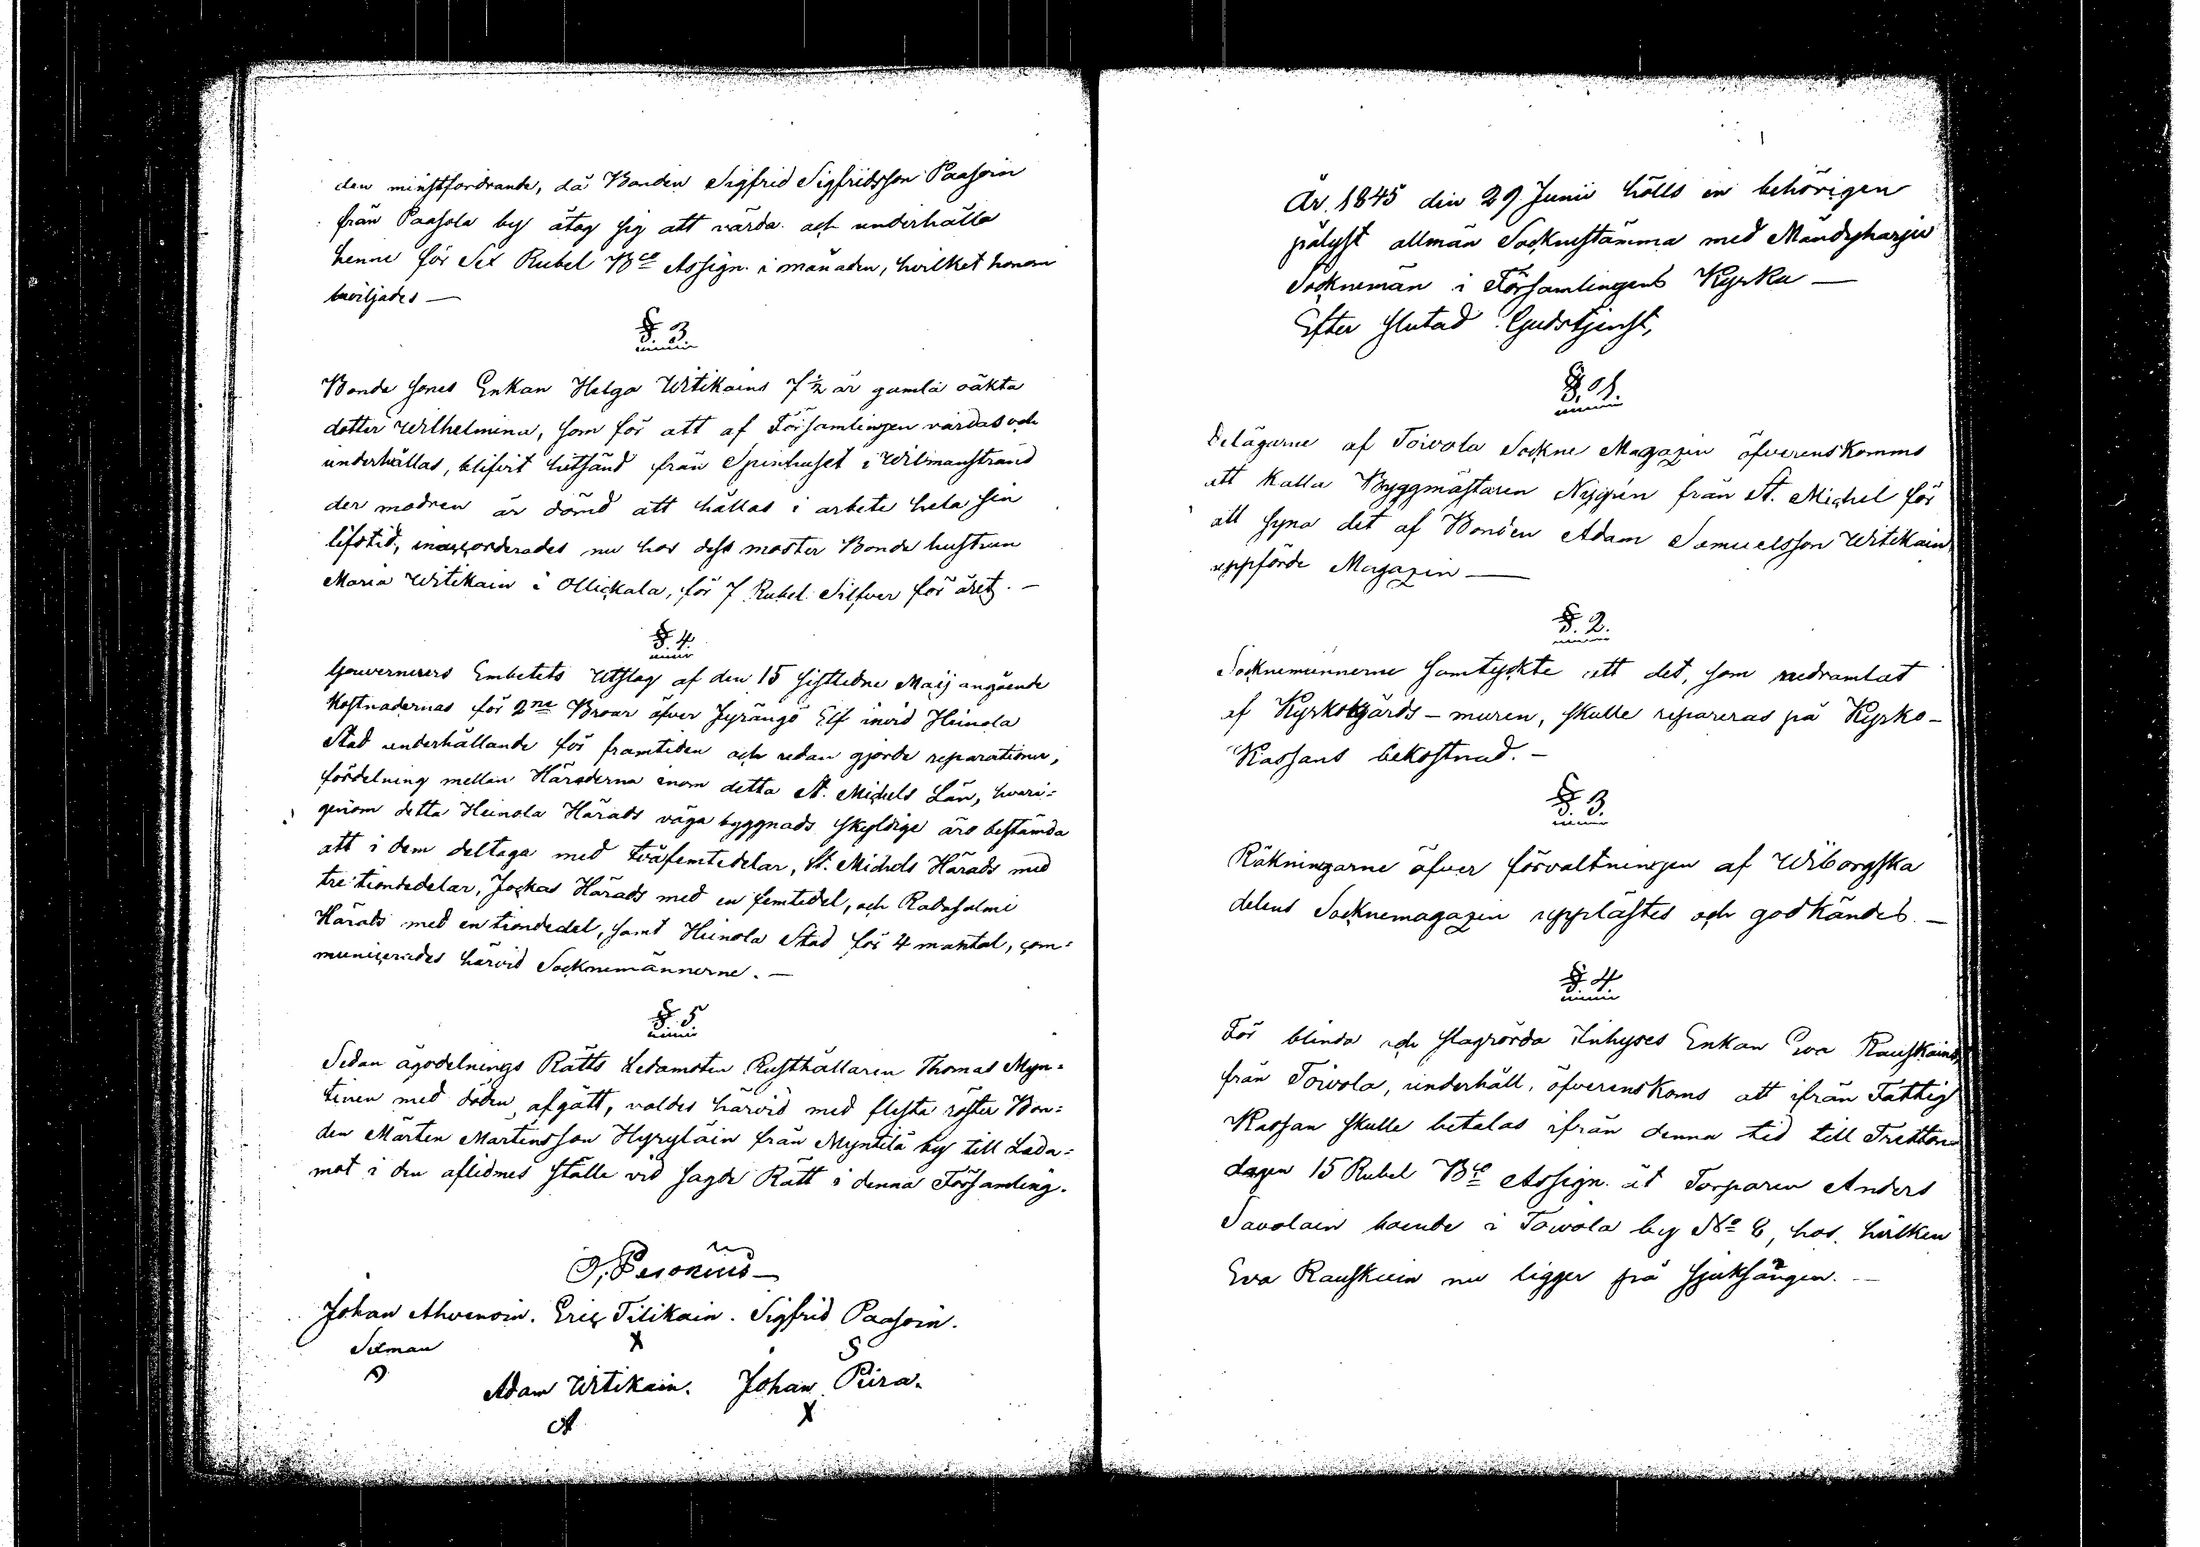 den minstfordrande, då Bonden Sigfrid Sigfridsson Paasoin
från Paasola by åtog sig att vårda och underhålla
henne för Sex Rubel Bco Assign. i månaden, hvilket honom
beviljades —
§ 3.
Bonde sones Enkan Helga Witikains 7 1/2 år gamla oäkta
dotter Wilhelmina, som för att af Församlingen vårdas och
underhållas, blifvit hitsänd från Spinhuset i Wilmanstrand
der modren är dömd att hållas i arbete hela sin
lifstid, inaccorderades nu hos dess moster Bonde hustrun
Maria Witikain i Ollickala, för 7 Rubel Silfver för året. —
§. 4.
Gouverneurs Embetets Utslag af den 15 sistledne Maij angående
Kostnadernas för 2ne Broar öfver Jyrängö Elf invid Heinola
Stad underhållande för framtiden och redan gjorde reparationer,
fördelning mellan Häraderna inom detta St. Michels Län, hvari-
genom detta Heinola Härads väga byggnads skyldige äro bestämda
att i dem deltaga med tvåfemtedelar, St. Michels Härads med
tre tiondedelar, Jockas Härads med en femtedel, och Randasalmi
Härads med en tiondedel, samt Heinola Stad för 4 mantal, com-
municerades härvid Socknemännerne. —
§. 5
Sedan ägodelnings Rätts Ledamoten Rusthållaren Thomas Myn-
tinen med döden afgått, valdes härvid med flesta röster Bon-
den Mårten Mårtensson Hyryläin från Myntilä by till Leda-
mot i den aflidnes ställe vid sagde Rätt i denna Församling.
Johan Ahvenoin. Eric Tilikain. Sigfrid Paasoin.
Sexman X S
Adam Witikain. Johan Piira.
A X
År 1845 den 29 Junii hölls en behörigen
pålyst allmän Socknestämma med Mändyharju
Socknemän i Församlingens Kyrka —
Efter slutad Gudstjenst,
§. 1.
Delägarne af Toivola Sockne Magazin öfverenskommo
att kalla Byggmästaren Nygrén från St. Michel för
att syna det af Bonden Adam Samuelsson Witikain
uppförde Magazin —
§. 2.
Socknemännerne samtyckte att det, som nedramlat
af Kyrkogårds-muren, skulle repareras på Kyrko-
Kassans bekostnad. —
§. 3.
Räkningarne öfver förvaltningen af Wiborgska
delens Socknemagazin upplästes och godkändes. —
§ 4
För blinda och slagrörda Inhyses Enkan Eva Rauskains
från Toivola, underhåll, öfverenskoms att ifrån Fattig
Kassan skulle betalas ifrån denna tid till Tretton
dagen 15 Rubel Bco Assign. åt Torparen Anders
Savolain boende i Toivola by No 8, hos hvilken
Eva Rauskain nu ligger på sjuksängen. —